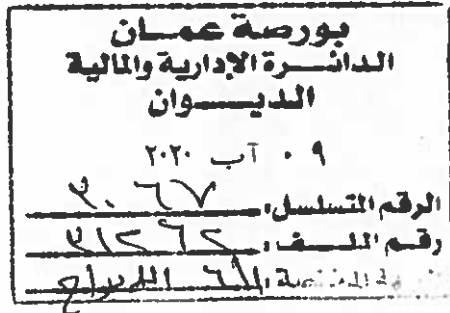 بورصة عمان
الدائرة الإدارية والمالية
الديوان
٠٩ آب ٢٠٢٠
الرقم المتسلسل: ٣٠٦٧
رقم الملف: ٣١٢٦٢
الجهة المختصة: الإدراج